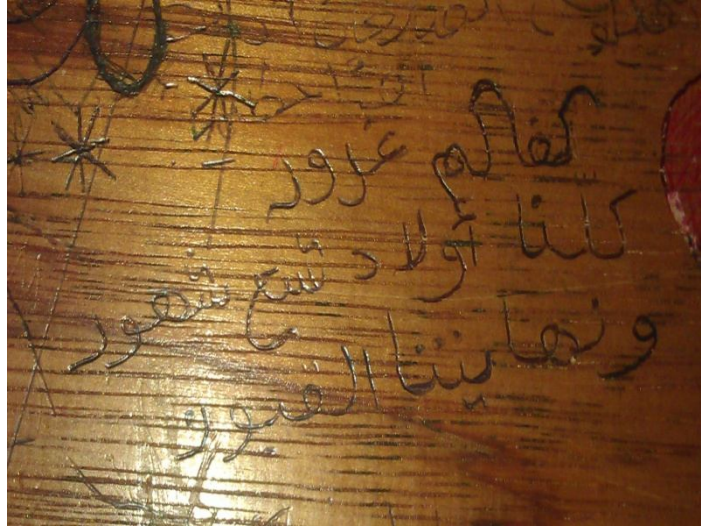 كفاكم غرور
كلنا أولاد تسع شهور
ونهايتنا القبور